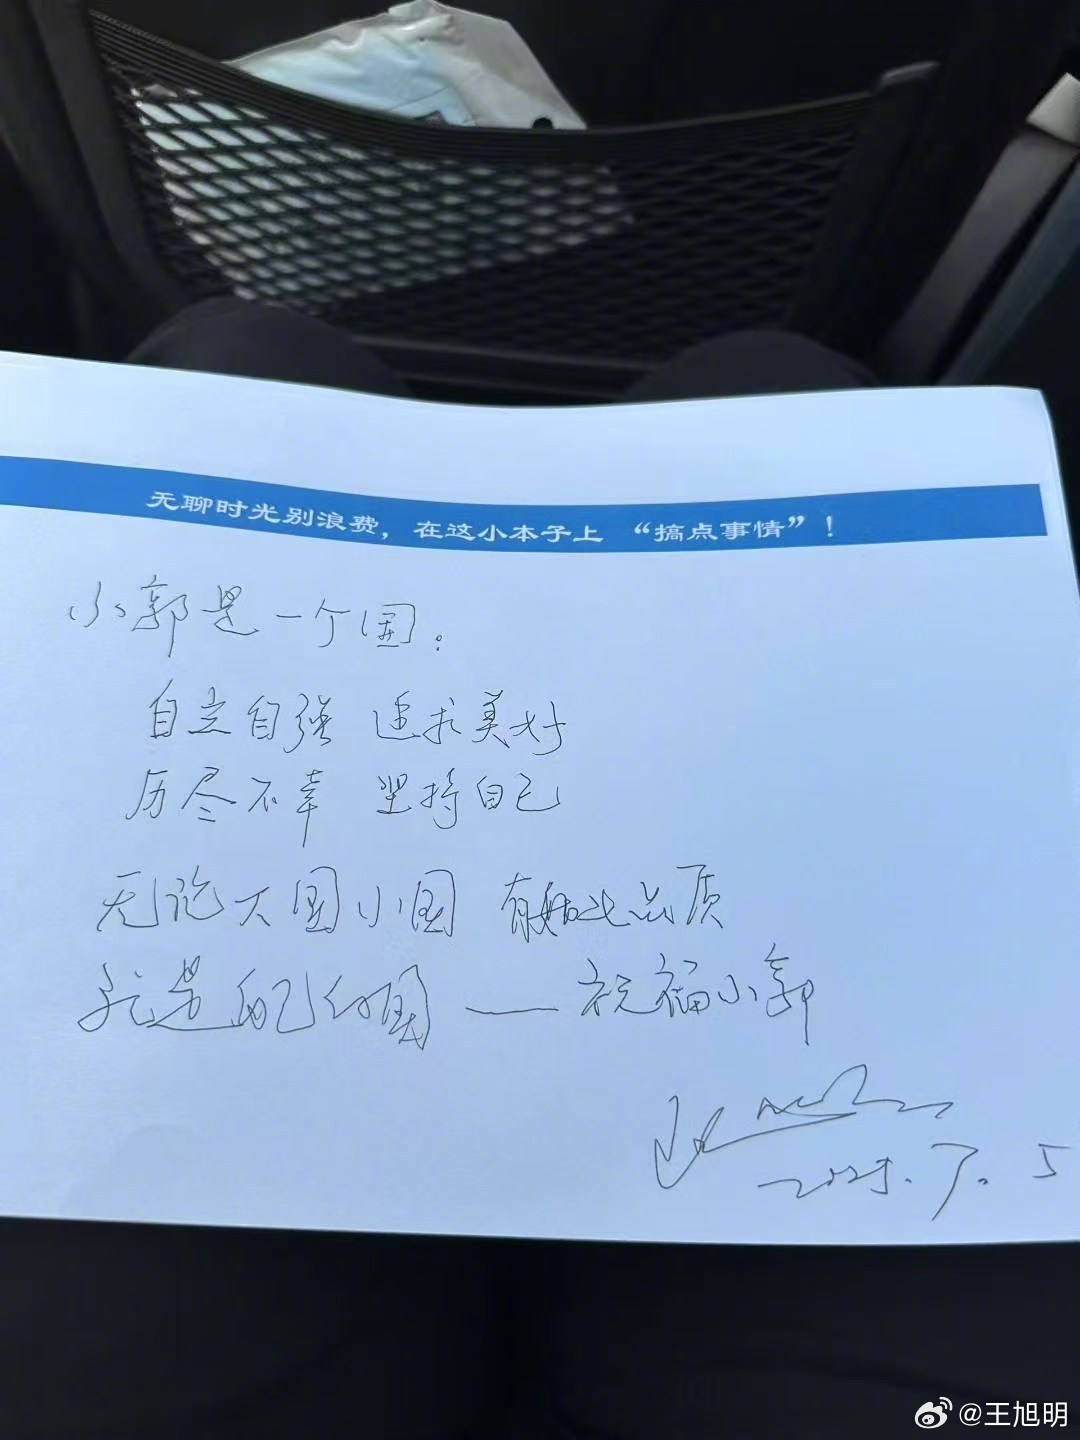 无聊时光别浪费，在这小本子上 “搞点事情”！
小郭是一个国：
自立自强 追求美好
历尽不幸 坚持自己
无论大国小国 有如此品质
就是自己的国 —— 祝福小郭
2025.7.5
@王旭明